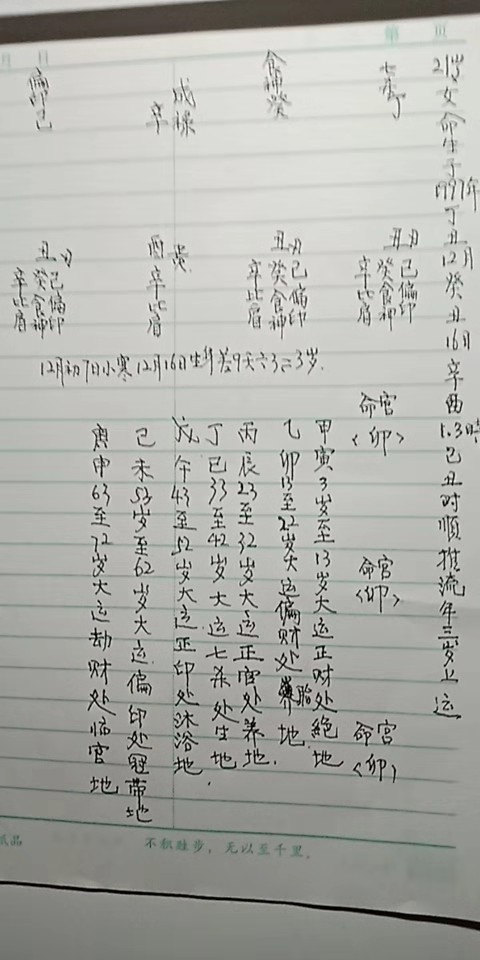 月 日
第 页
21岁女命生于1997年丁丑12月癸丑16日辛酉1.3時己丑时順推流年三岁上运
七杀丁
食神癸
成禄
辛
偏印己
丑刃
己偏印
癸食神
辛比肩
丑刃
己偏印
癸食神
辛比肩
酉
辛比肩
丑刃
己偏印
癸食神
辛比肩
12月初7日小寒12月16日生 9天 3岁.
命宫
<卯>
命宫
<卯>
命宫
<卯>
甲寅3岁至13岁大运正财处絕地
乙卯13至22岁大运偏财处胎地.
丙辰23至32岁大运正官处养地.
丁巳33至42岁大运七杀处生地.
戊午43至52岁大运正印处沐浴地
己未53岁至62岁大运偏印处冠带地
庚申63至72岁大运劫财处临官地
纸品
不积跬步，无以至千里。